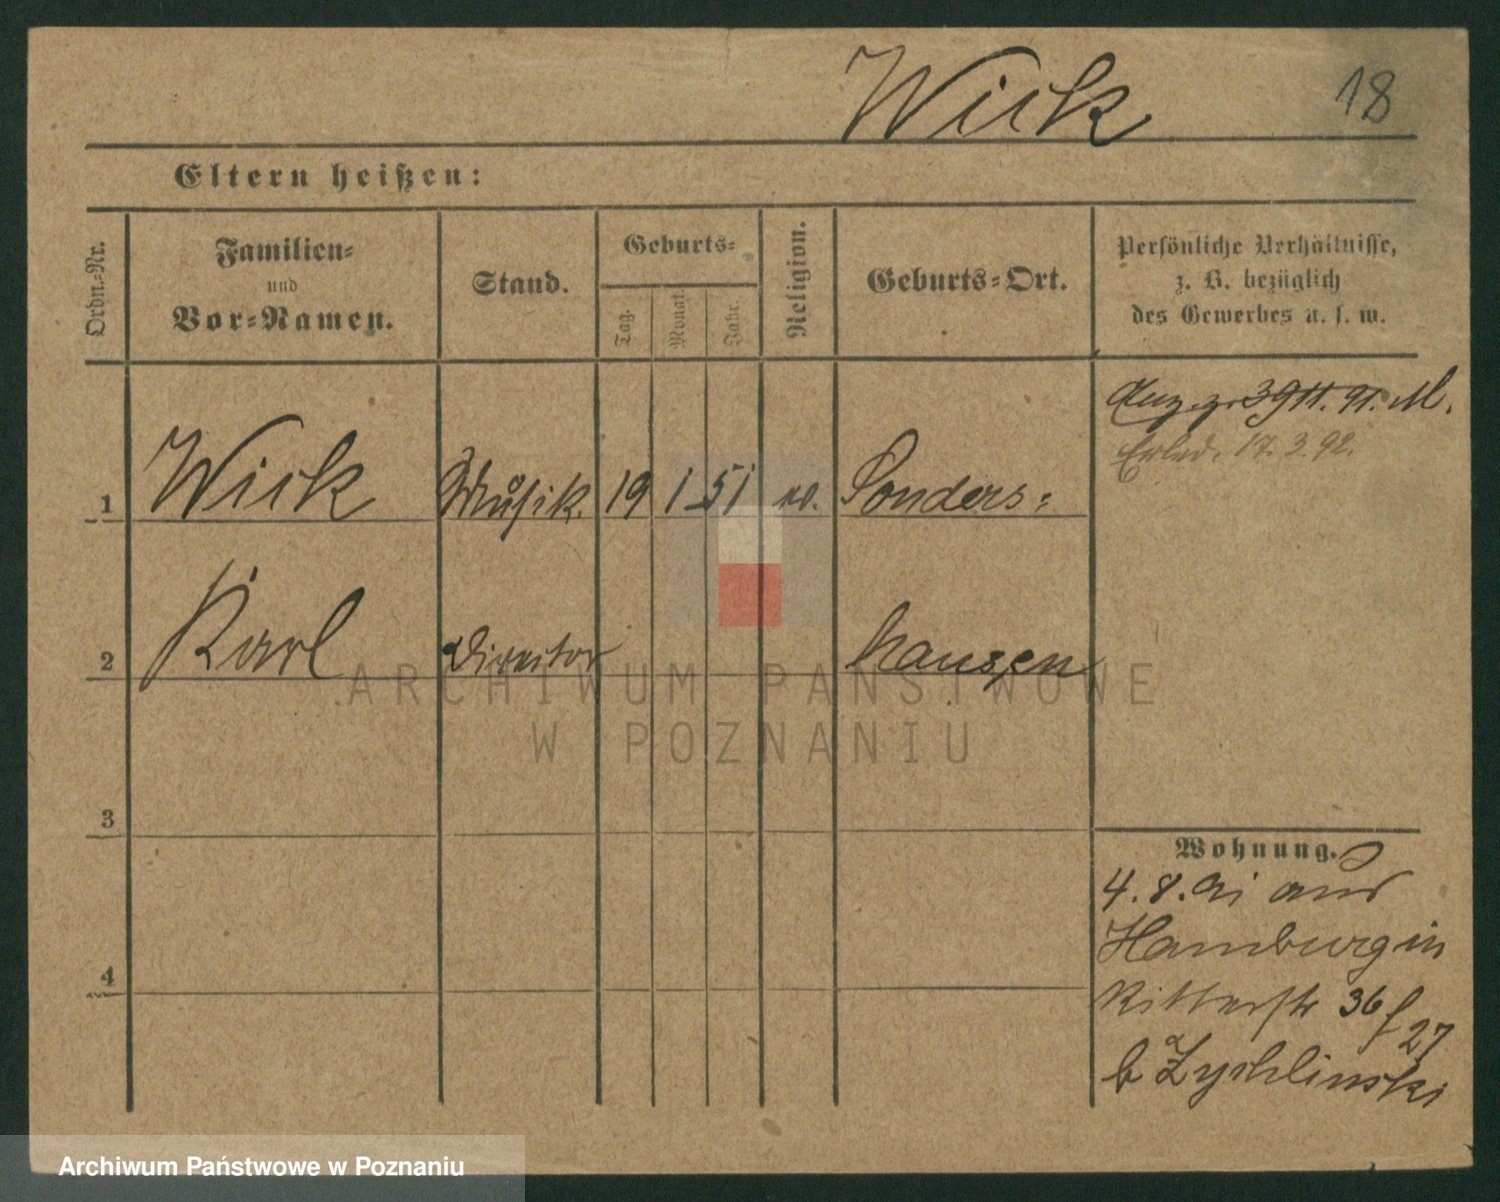 Wick 18
Eltern heißen:
Ordn.-Nr.
Familien-
und
Vor-Namen.
Stand.
Geburts-
Tag.
Monat.
Jahr.
Religion.
Geburts-Ort.
Persönliche Verhältnisse,
z. B. bezüglich
des Gewerbes u. s. w.
1 Wick Musik. 19 1 51 Sonders-
2 Karl Director hausen
3
4
M.
Erled. 17.3.92.
Wohnung.
4. 8. 91 aus
Hamburg in
Ritterstr 36
27
b Zychlinski
ARCHIWUM PAŃSTWOWE
W POZNANIU
Archiwum Państwowe w Poznaniu